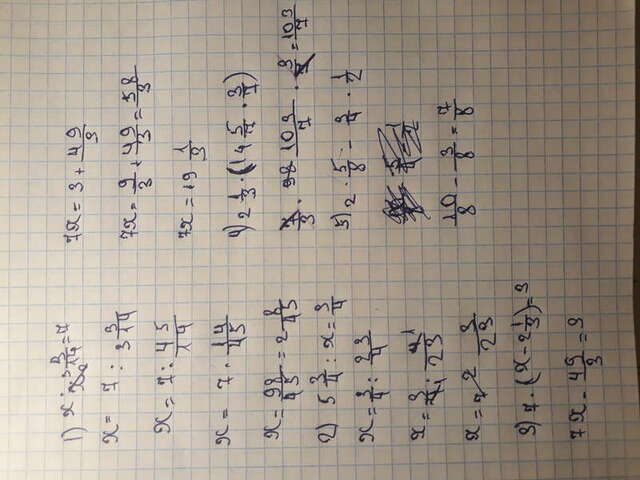 1) x · 3 3/14 = 7
x = 7 : 3 3/14
x = 7 : 45/14
x = 7 · 14/45
x = 98/45 = 2 8/45
2) 5 3/4 : x = 3/4
x = 3/4 : 23/4
x = 3/4 · 4/23
x = 3/23
3) 7 · (x - 2 1/3) = 3
7x - 49/3 = 3
7x = 3 + 49/3
7x = 9/3 + 49/3 = 58/3
7x = 19 1/3
4) 2 1/3 · (14 5/7 · 3/7)
7/3 · 103/7 · 3/7 = 103/7
5) 2 · 5/8 - 3/4 · 1/2
10/8 - 3/8 = 7/8